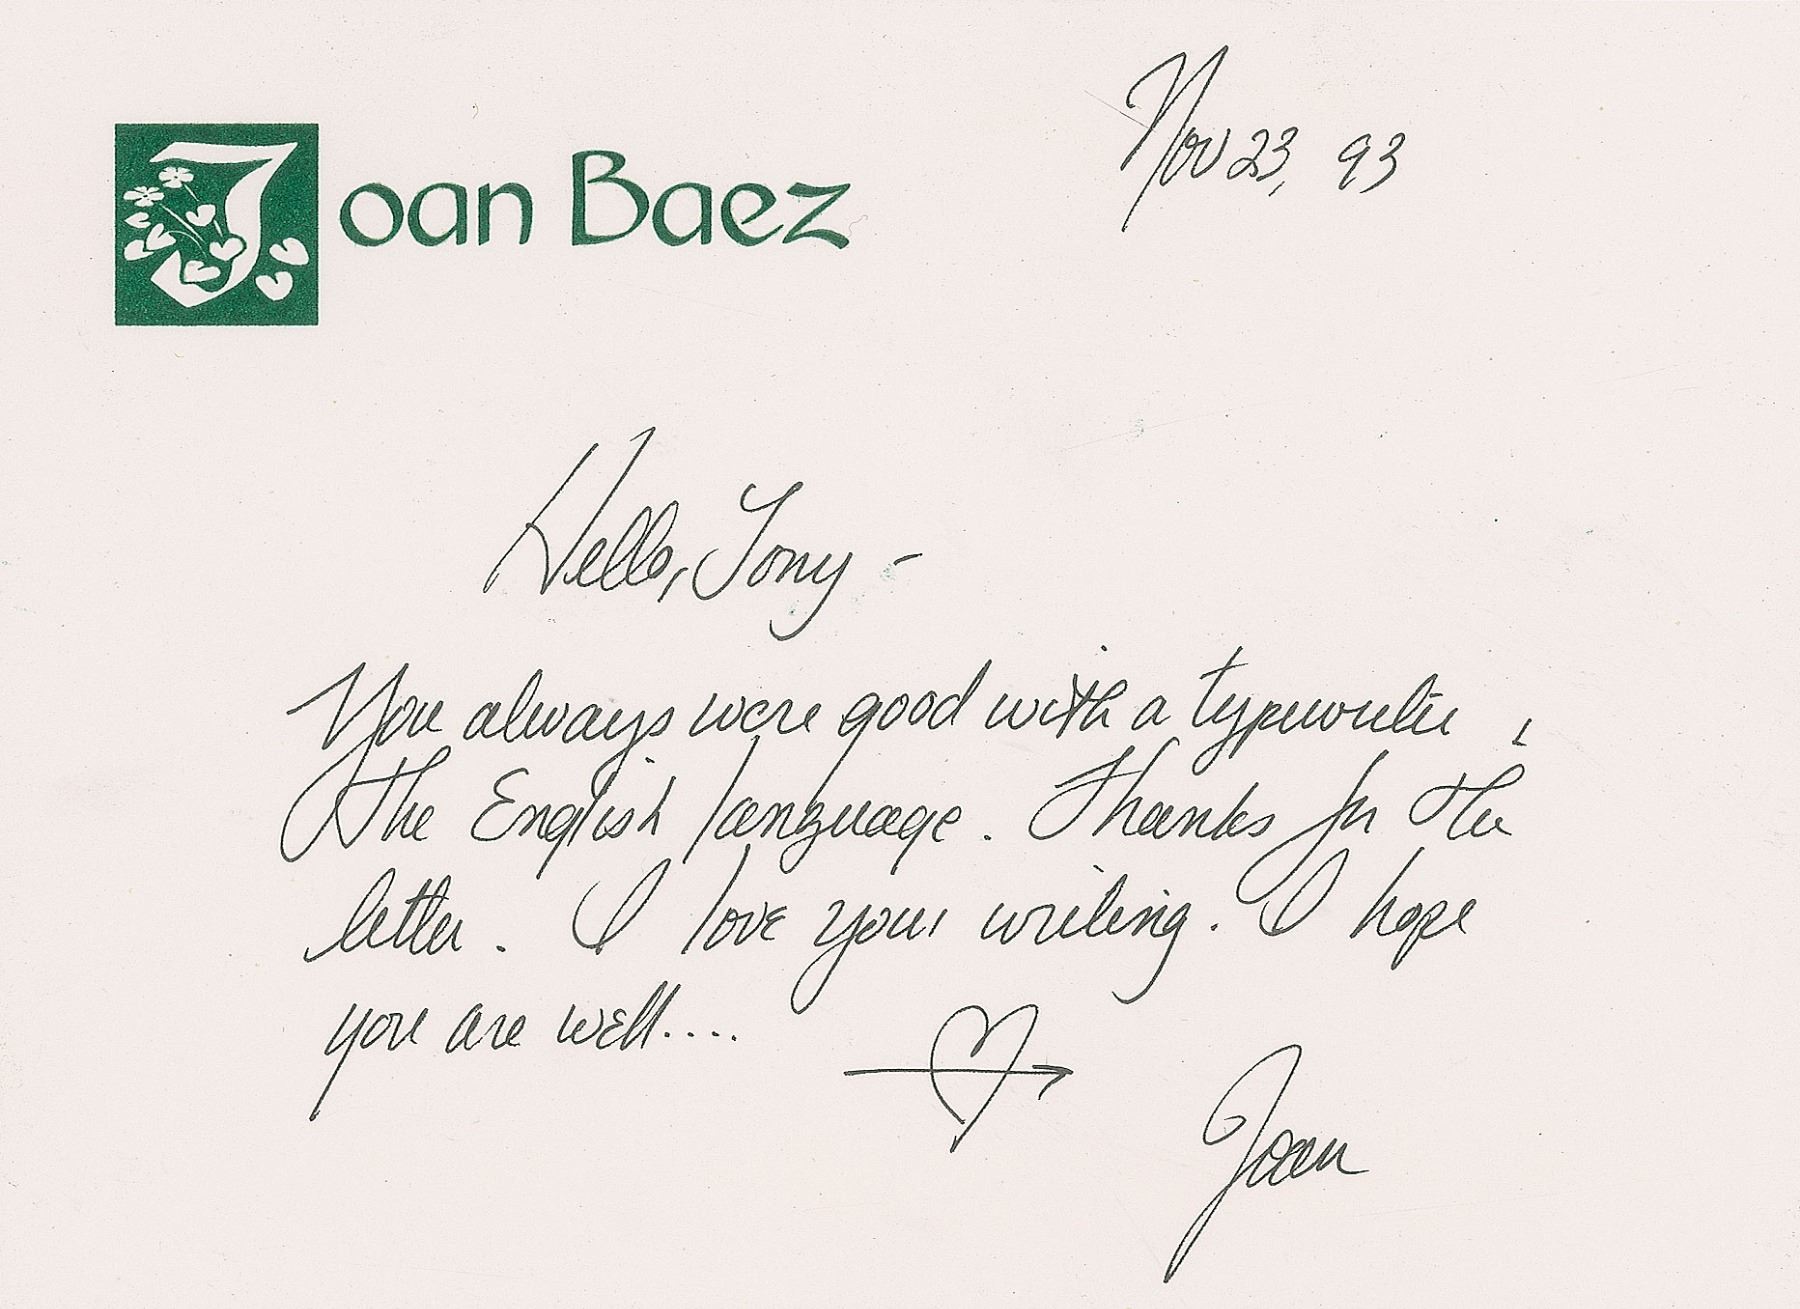 Joan Baez
Nov 23, 93
Hello, Tony -
You always were good with a typewriter &
the English language. Thanks for the
letter. I love your writing. I hope
you are well....
Joan